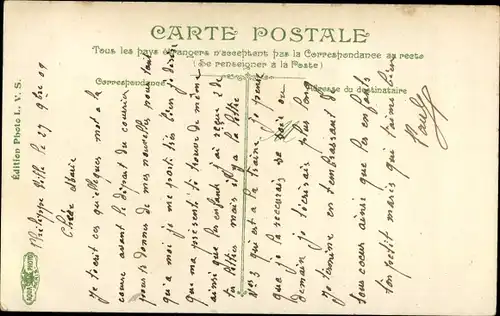 CARTE POSTALE
Tous les pays étrangers n'acceptent pas la Correspondance au recto
(Se renseigner à la Poste)
Correspondance
Adresse du destinataire
Édition Photo L. V. S.
Philippe Ville le 27 9bre 09
Chère Marie
Je t'écrit ces quelleques mot a la
couve avant le départ du courrier
pour te donner de mes nouvelles pour tant
qu'a moi je me porte très bien je désire
que ma présente te trouve de même
ainsi que les enfants j'ai reçue 2 de
tu lettres mais il y a la lettre
no 3 qui est a la traine je pense
que je la recevrais ce soir ou
demain je t'écrirais plus long
Je termine en t'embrassant de
tous coeur ainsi que les enfants
ton petit maris qui t'aime bien
Paul